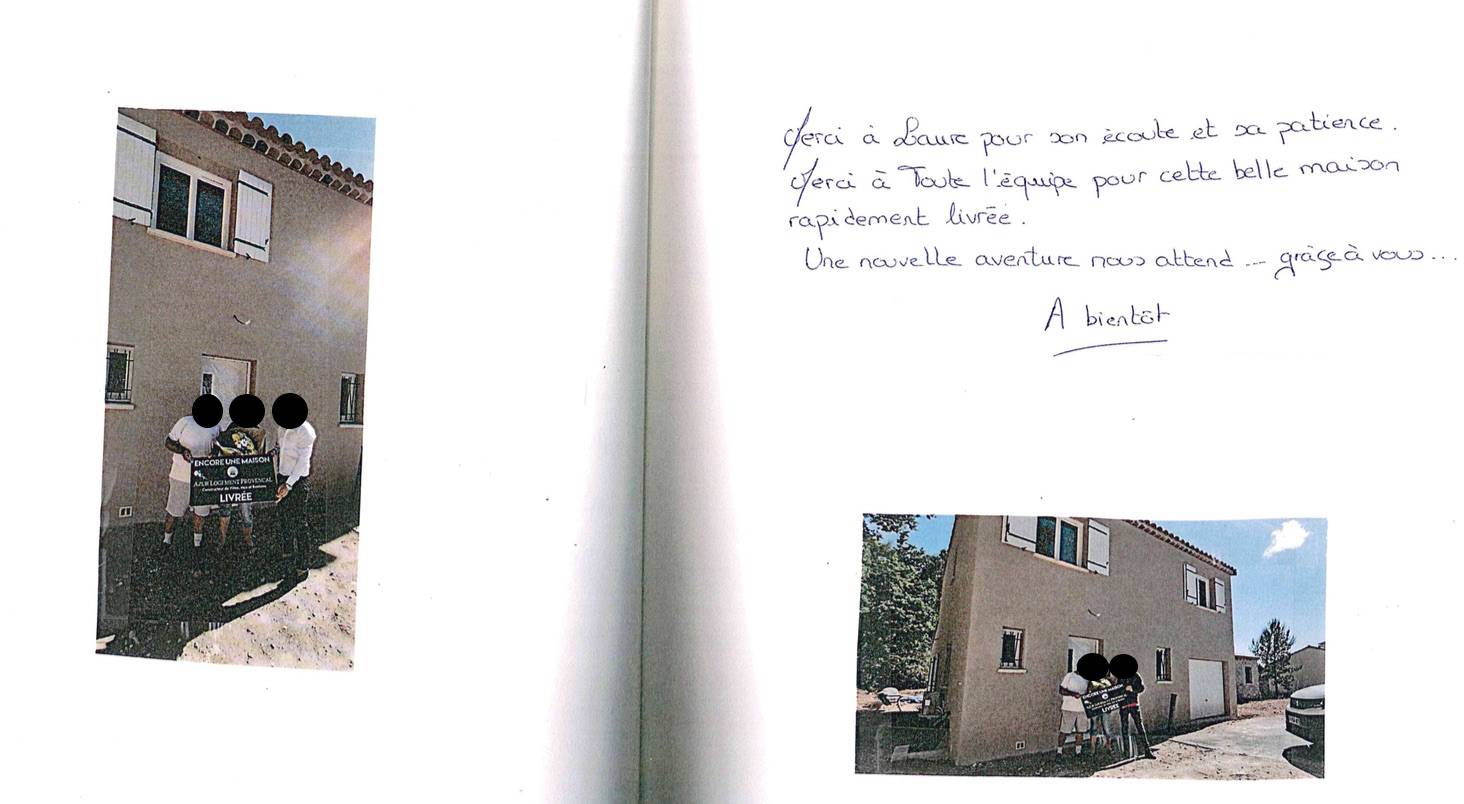 ENCORE UNE MAISON
AZUR LOGEMENT PROVENÇAL
Constructeur de Villas, Mas et Bastides
LIVRÉE
Merci à Laure pour son écoute et sa patience.
Merci à Toute l'équipe pour cette belle maison
rapidement livrée.
Une nouvelle aventure nous attend ... grâçe à vous...
A bientôt
ENCORE UNE MAISON
AZUR LOGEMENT PROVENÇAL
LIVRÉE